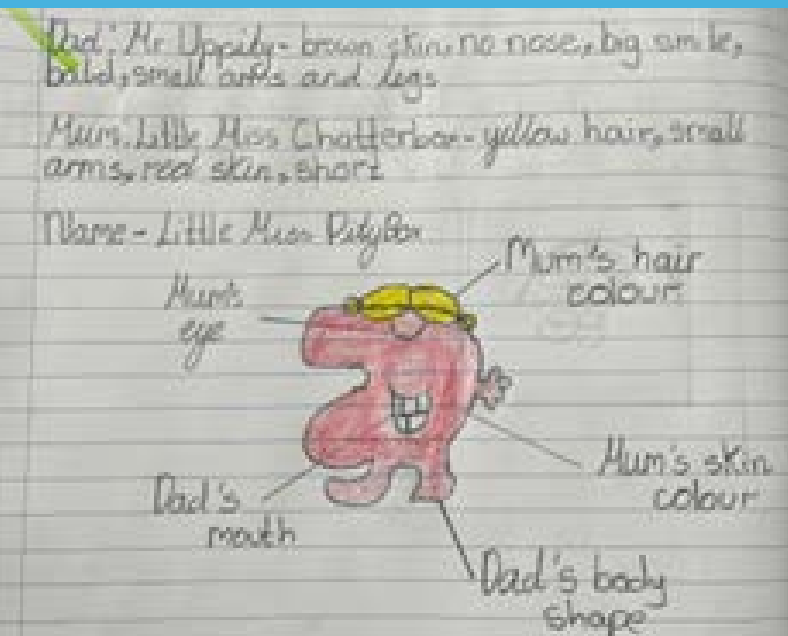 Dad: Mr Uppity - brown skin, no nose, big smile,
bald, small arms and legs
Mum: Little Miss Chatterbox - yellow hair, small
arms, red skin, short
Name - Little Miss
Mum's hair
colour
Mum's
eye
Mum's skin
colour
Dad's
mouth
Dad's body
shape